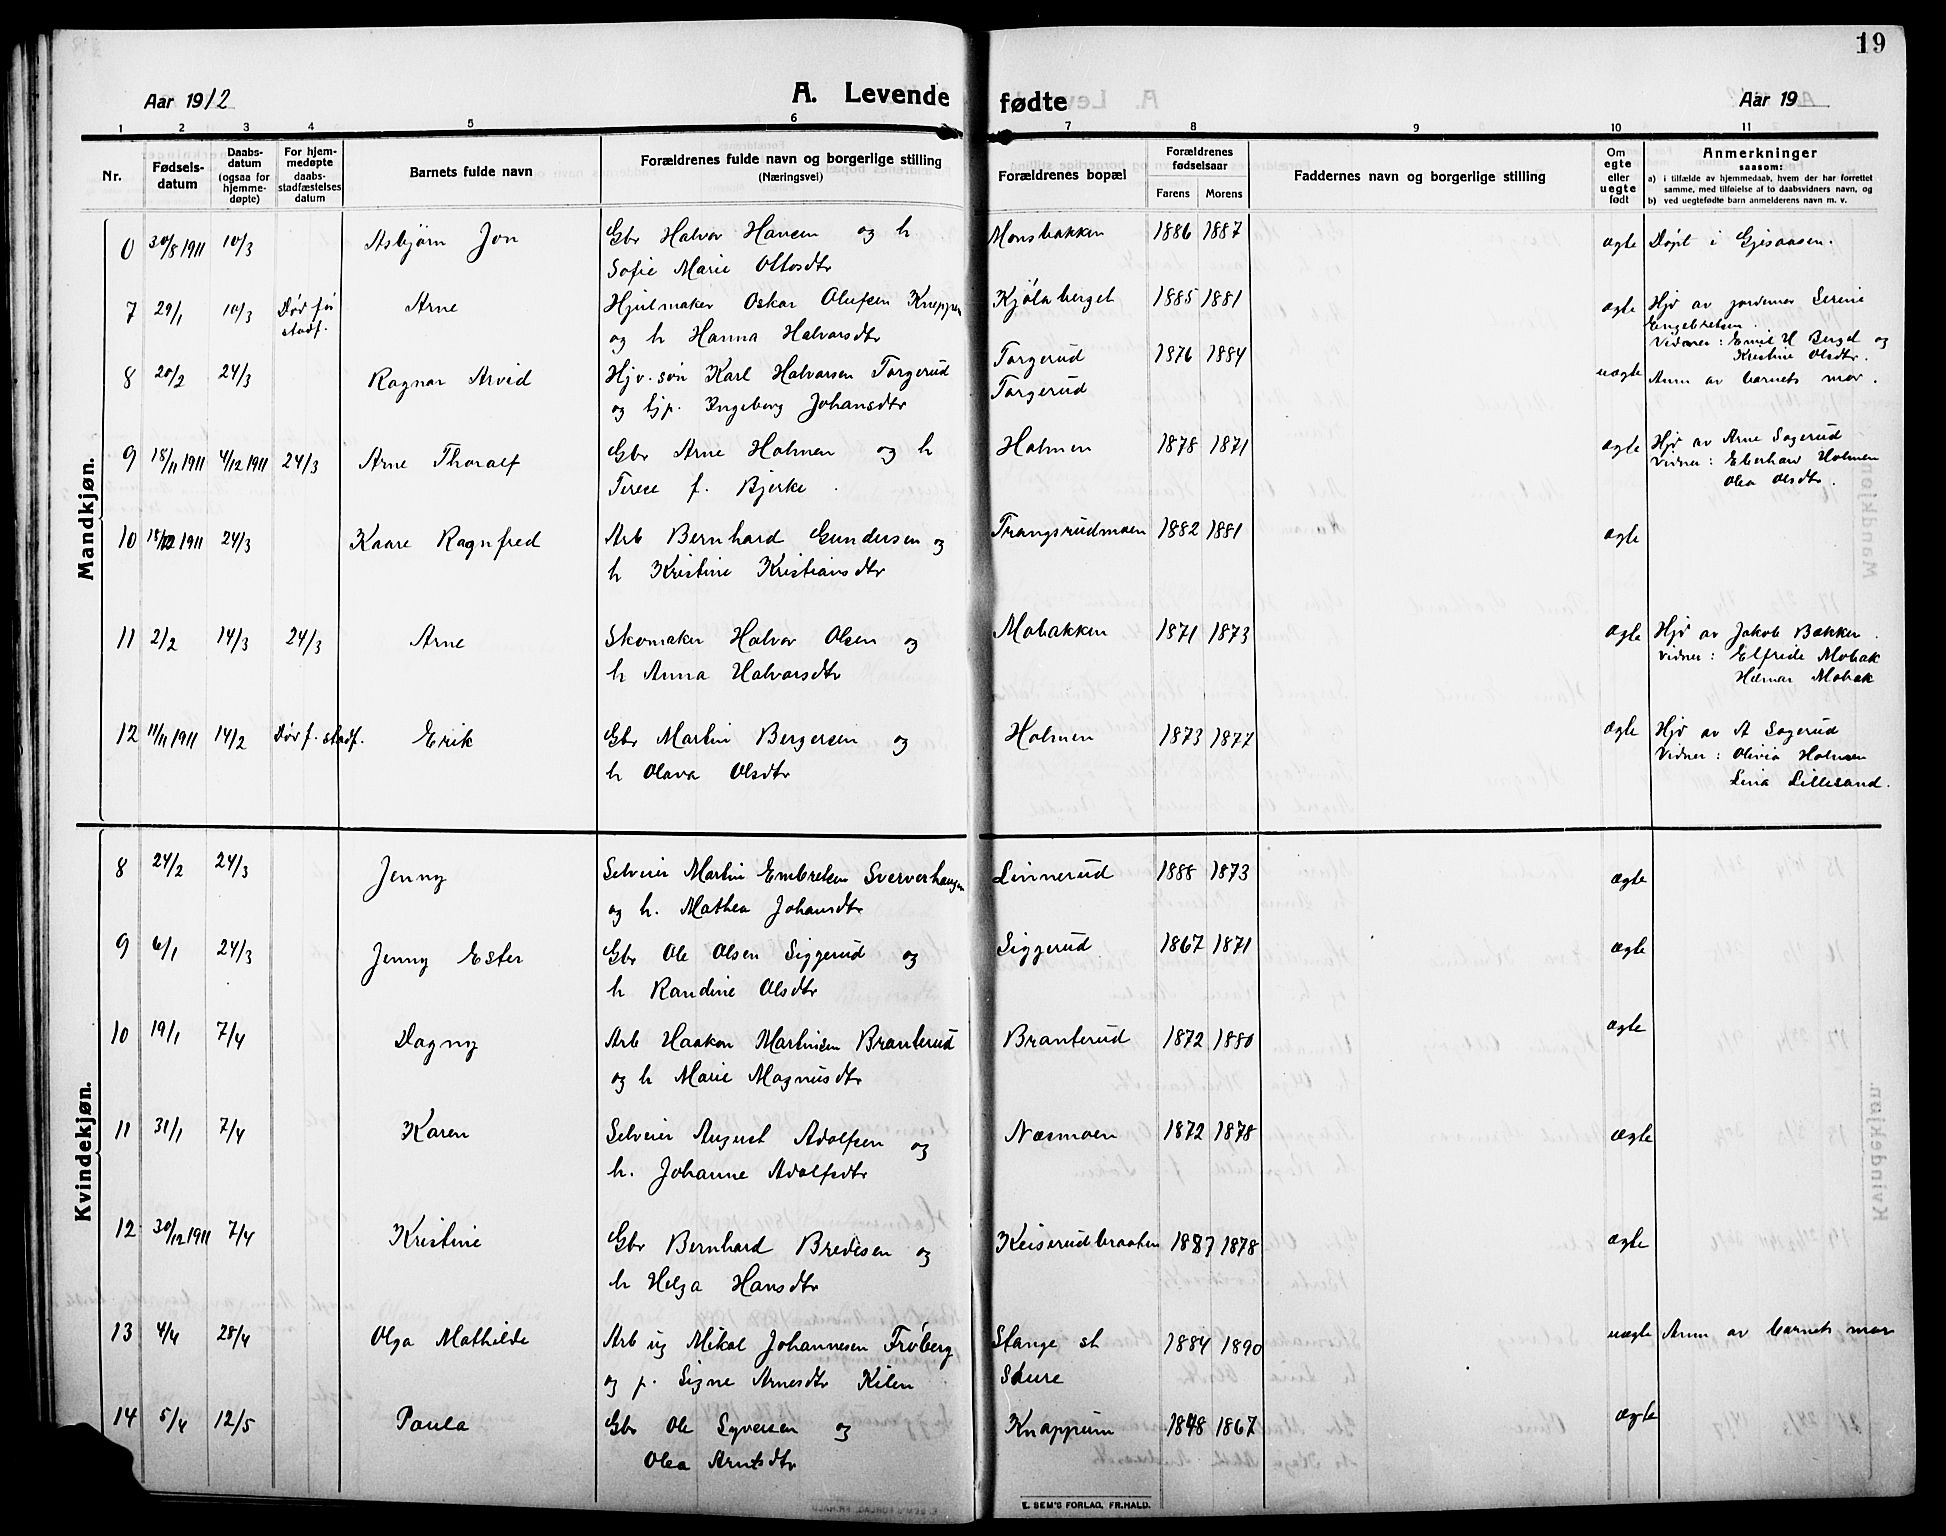 19
Aar 1912 A. Levende fødte Aar 19
1 2 3 4 5 6 7 8 9 10 11
Nr. Fødselsdatum Daabsdatum (ogsaa for hjemmedøpte) For hjemmedøpte daabsstadfæstelses datum Barnets fulde navn Forældrenes fulde navn og borgerlige stilling (Næringsvei) Forældrenes bopæl Forældrenes fødselsaar Farens Morens Faddernes navn og borgerlige stilling Om egte eller uegte født Anmerkninger saasom: a) i tilfælde av hjemmedaab, hvem der har forrettet samme, med tilføielse af to daabsvidners navn, og b) ved uegtefødte barn anmelderens navn m. v.
Mandkjøn.
0 30/8 1911 10/3 Asbjørn Jon Gbr Halvor Hansen og h Monsbakken 1886 1887 ægte Døpt i Gjesaasen.
Sofie Marie Ottosdtr
7 29/1 10/3 Død før stadf. Arne Hjulmaker Oskar Olufsen Kneppen Kjølaberget 1885 1881 ægte Hjd av jordemor Serine Engebretsen.
og h Hanna Halvorsdtr Vidner: Emil H Berget og Kristine Olsdtr.
8 20/2 24/3 Ragnar Arvid Hjv. søn Karl Halvorsen Torgerud Torgerud 1876 1884 uægte Anm av barnets mor.
og tjp. Ingeborg Johansdtr Torgerud
9 18/11 1911 4/12 1911 24/3 Arne Thoralf Gbr Arne Holmen og h Holmen 1878 1871 ægte Hjd av Arne Sagerud
Terese f. Bjerke. Vidner: Eberhard Holmen
Olea Olsdtr.
10 18/12 1911 24/3 Kaare Ragnfred Arb Bernhard Gundersen og Trangsrudmoen 1882 1881 ægte
h Kristine Kristiansdtr
11 2/2 14/3 24/3 Arne Skomaker Halvor Olsen og Mobakken 1871 1873 ægte Hjd av Jakob Bakken.
h Anna Halvorsdtr Vidner: Elfride Mobak
Helmar Mobak
12 11/11 1911 14/2 Død f. stadf. Erik Gbr Martin Bergersen og Holmen 1873 1877 ægte Hjd av A Sagerud
h Olava Olsdtr Vidner: Olivia Holmen
Lina Lillesand.
Kvindekjøn.
8 24/2 24/3 Jenny Selveier Martin Embretsen Sververhaugen Linnerud 1888 1873 ægte
og h. Mathea Johansdtr
9 6/1 24/3 Jenny Ester Gbr Ole Olsen Siggerud og Siggerud 1867 1871 ægte
h Randine Olsdtr
10 19/1 7/4 Dagny Arb Haakon Martinsen Branterud Branterud 1872 1880 ægte
og h Marie Magnusdtr
11 31/1 7/4 Karen Selveier August Adolfsen og Næsmoen 1872 1878 ægte
h. Johanne Adolfsdtr
12 30/12 1911 7/4 Kristine Gbr Bernhard Bredesen og Keiserudbraaten 1887 1878 ægte
h Helga Hansdtr
13 4/4 28/4 Olga Mathilde Arb ug Mikal Johannesen Frøberg Stange st 1884 1890 uægte Anm av barnets mor
og p. Signe Arnesdtr Kilen
14 5/4 12/5 Paula Gbr Ole Syversen og Knappum 1848 1867 ægte
Olea Arntsdtr
E. SEM'S FORLAG, FR.HALD.